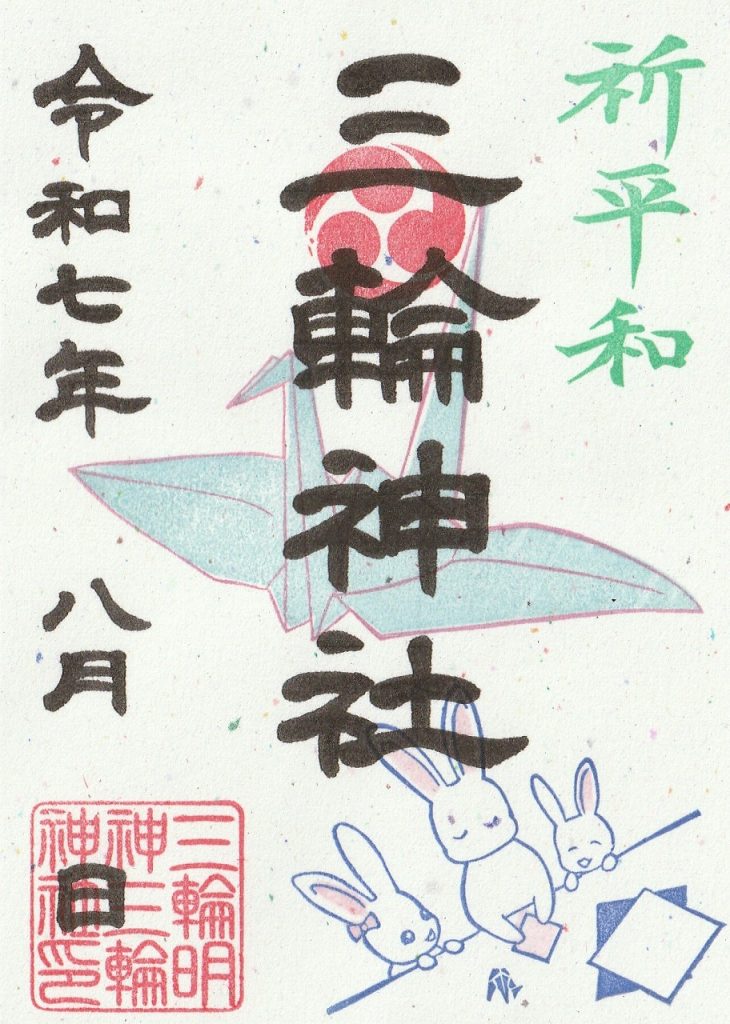 祈平和
三輪神社
令和七年 八月 日
三輪明
神三輪
神社印